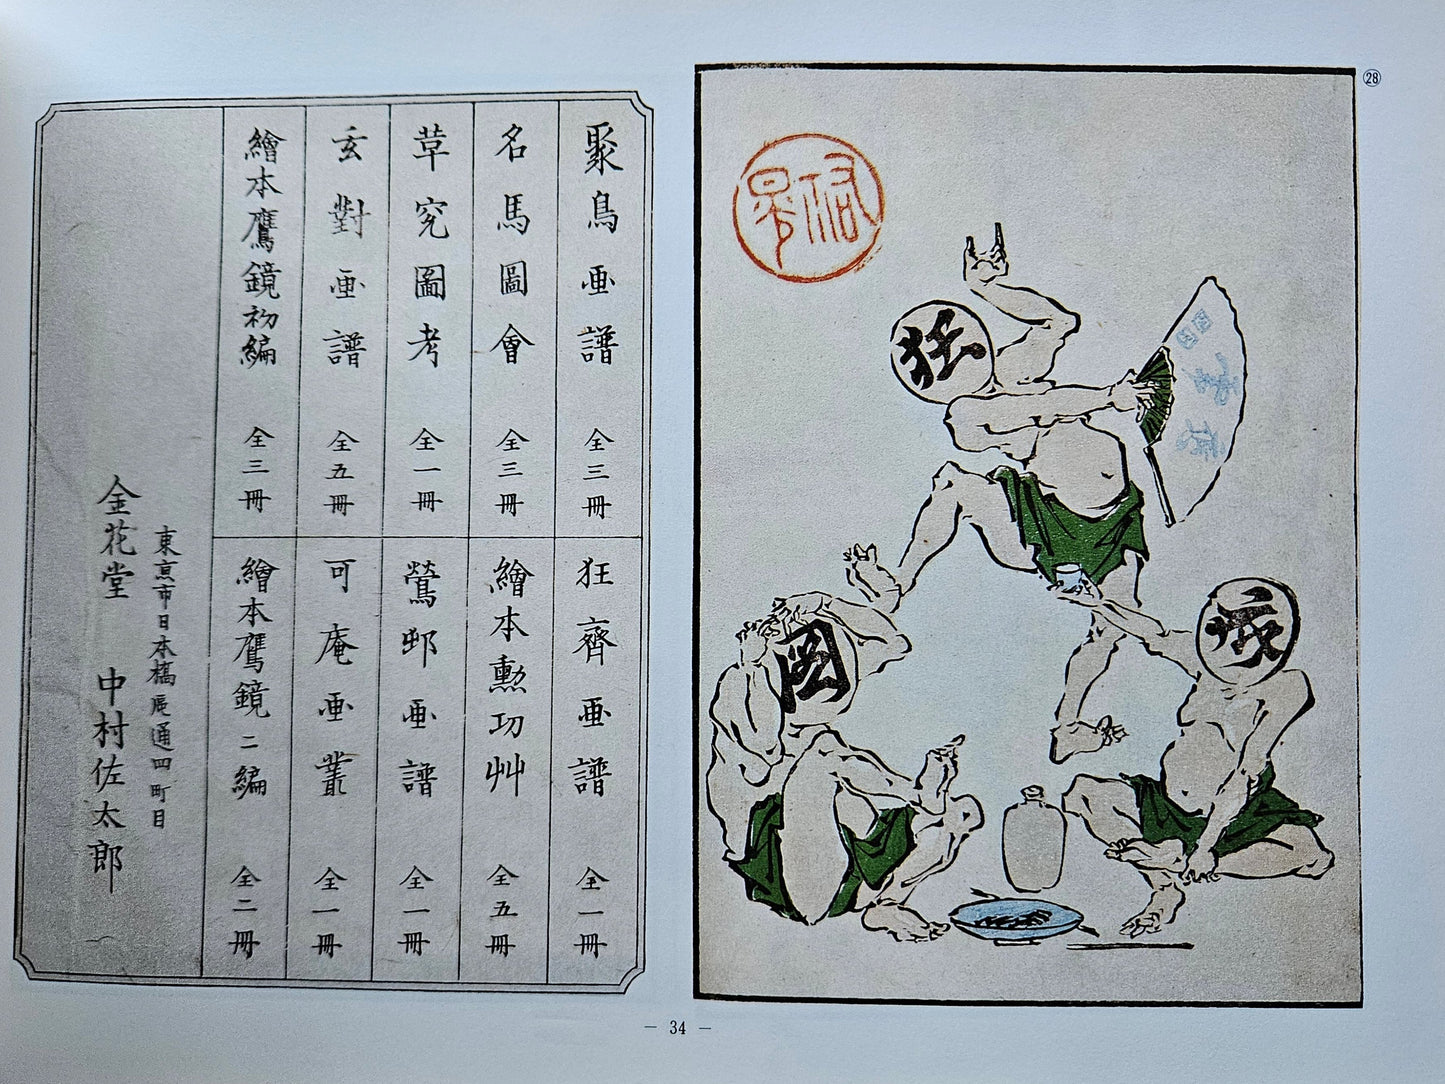 ㉘
狂
聚鳥画譜 全三冊
名馬圖會 全三冊
草究圖考 全一冊
玄對画譜 全五冊
繪本鷹鏡初編 全三冊
狂齊画譜 全一冊
繪本勲功艸 全五冊
鶯邨画譜 全一冊
可庵画叢 全一冊
繪本鷹鏡二編 全二冊
東京市日本橋區通四町目
金花堂 中村佐太郎
— 34 —